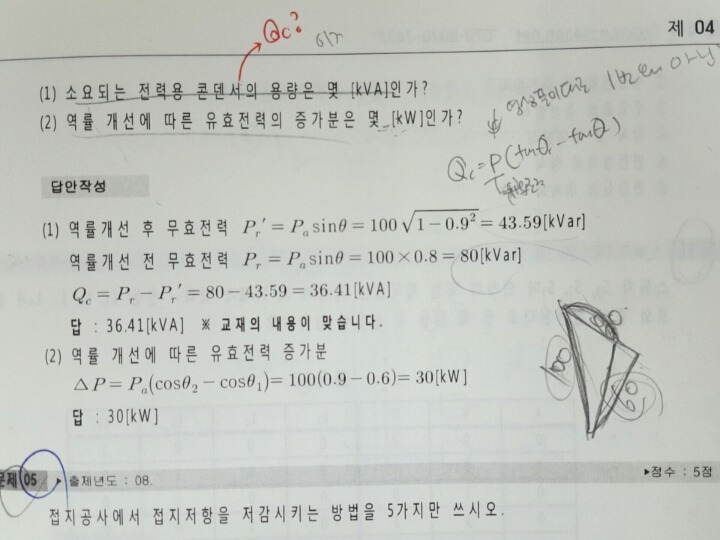 Qc?
제 04
(1) 소요되는 전력용 콘덴서의 용량은 몇 [kVA]인가?
(2) 역률 개선에 따른 유효전력의 증가분은 몇 [kW]인가?
Qc = P(tanθ₁ - tanθ)
답안작성
(1) 역률개선 후 무효전력 Pr' = Pa sinθ = 100√(1-0.9²) = 43.59[kVar]
역률개선 전 무효전력 Pr = Pa sinθ = 100×0.8 = 80[kVar]
Qc = Pr - Pr' = 80 - 43.59 = 36.41[kVA]
답 : 36.41[kVA] ※ 교재의 내용이 맞습니다.
(2) 역률 개선에 따른 유효전력 증가분
△P = Pa(cosθ₂ - cosθ₁) = 100(0.9 - 0.6) = 30[kW]
답 : 30[kW]
100
80
60
문제 05 ▸ 출제년도 : 08. ▸점수 : 5점
접지공사에서 접지저항을 저감시키는 방법을 5가지만 쓰시오.